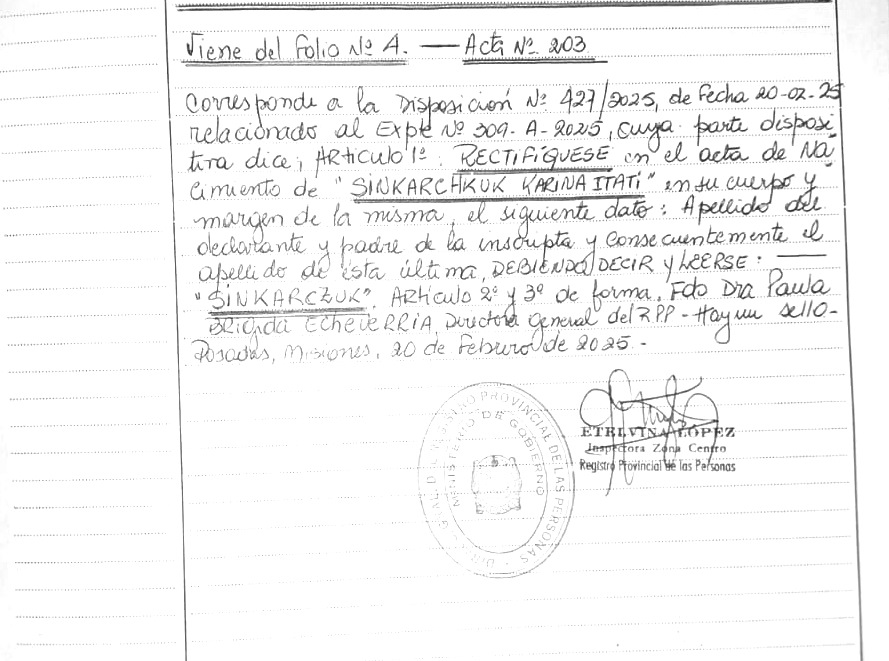 Viene del Folio Nº A. — Acta Nº 203
Corresponde a la Disposición Nº 427/2025, de fecha 20-02-25
relacionado al Expte Nº 309-A-2025, cuya parte disposi
tiva dice, ARTICULO 1º: RECTIFÍQUESE en el acta de Na
cimiento de "SINKARCHKUK KARINA ITATI" en su cuerpo y
margen de la misma, el siguiente dato: Apellido del
declarante y padre de la inscripta y consecuentemente el
apellido de ésta última, DEBIENDO DECIR y LEERSE: —
"SINKARCZUK". Artículo 2º y 3º de forma. Fdo Dra Paula
Brigida Echeverría, Directora General del RPP - Hay un sello-
Posadas, Misiones, 20 de Feburo de 2025.-
PROVINCIAL DE LAS PERSONAS
MINISTERIO DE GOBIERNO
ETELVINA LÓPEZ
Inspectora Zona Centro
Registro Provincial de las Personas